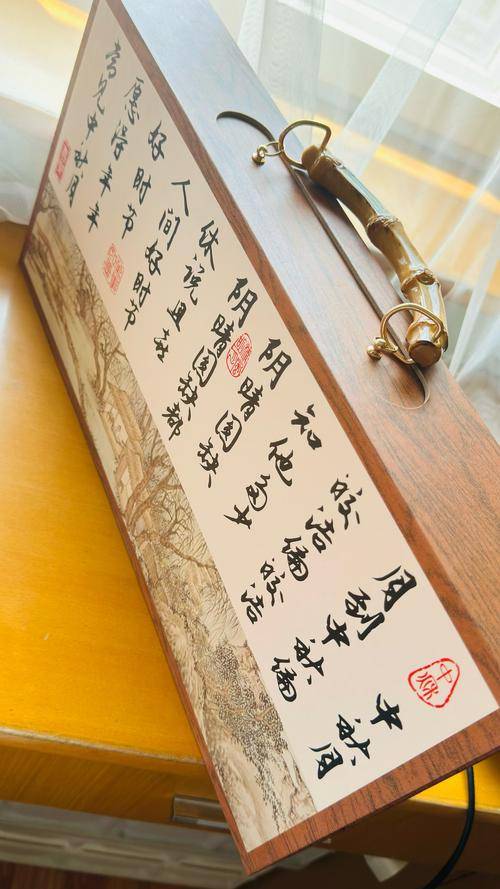 中秋月
中秋
月到中秋偏
皎洁偏皎洁
知他多少
阴晴圆缺
阴晴圆缺都
休说且喜
人间好时节
好时节
愿得年年
常见中秋月